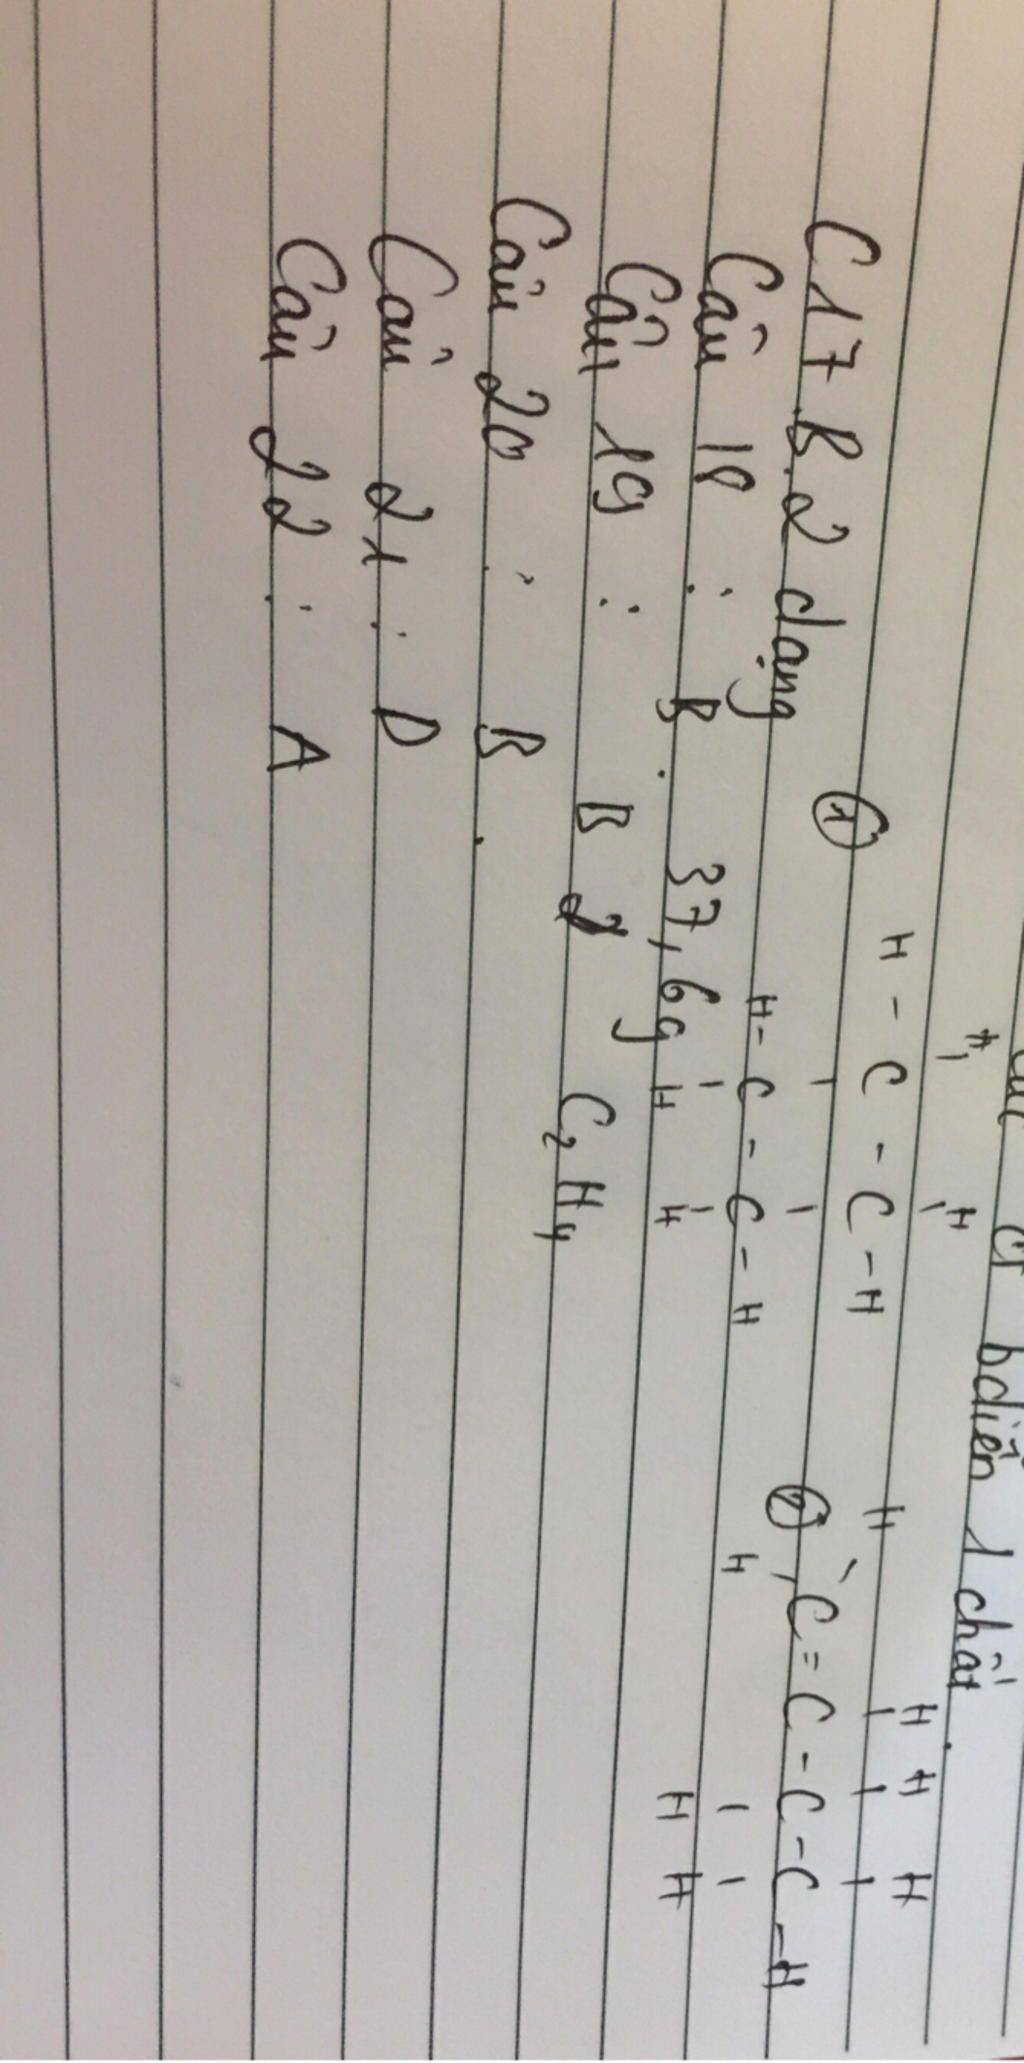 CT bdiễn 1 chất.
H H H H H
C17.B.2 dạng ① H - C - C - H ② C = C - C - C - H
H - C - C - H H H H
H H
Câu 18 : B. 37,6g
Câu 19 : B C2H4
Câu 20 : B.
Câu 21 : D
Câu 22 : A